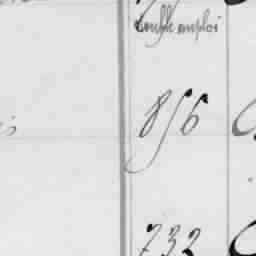 double emploi
856
732